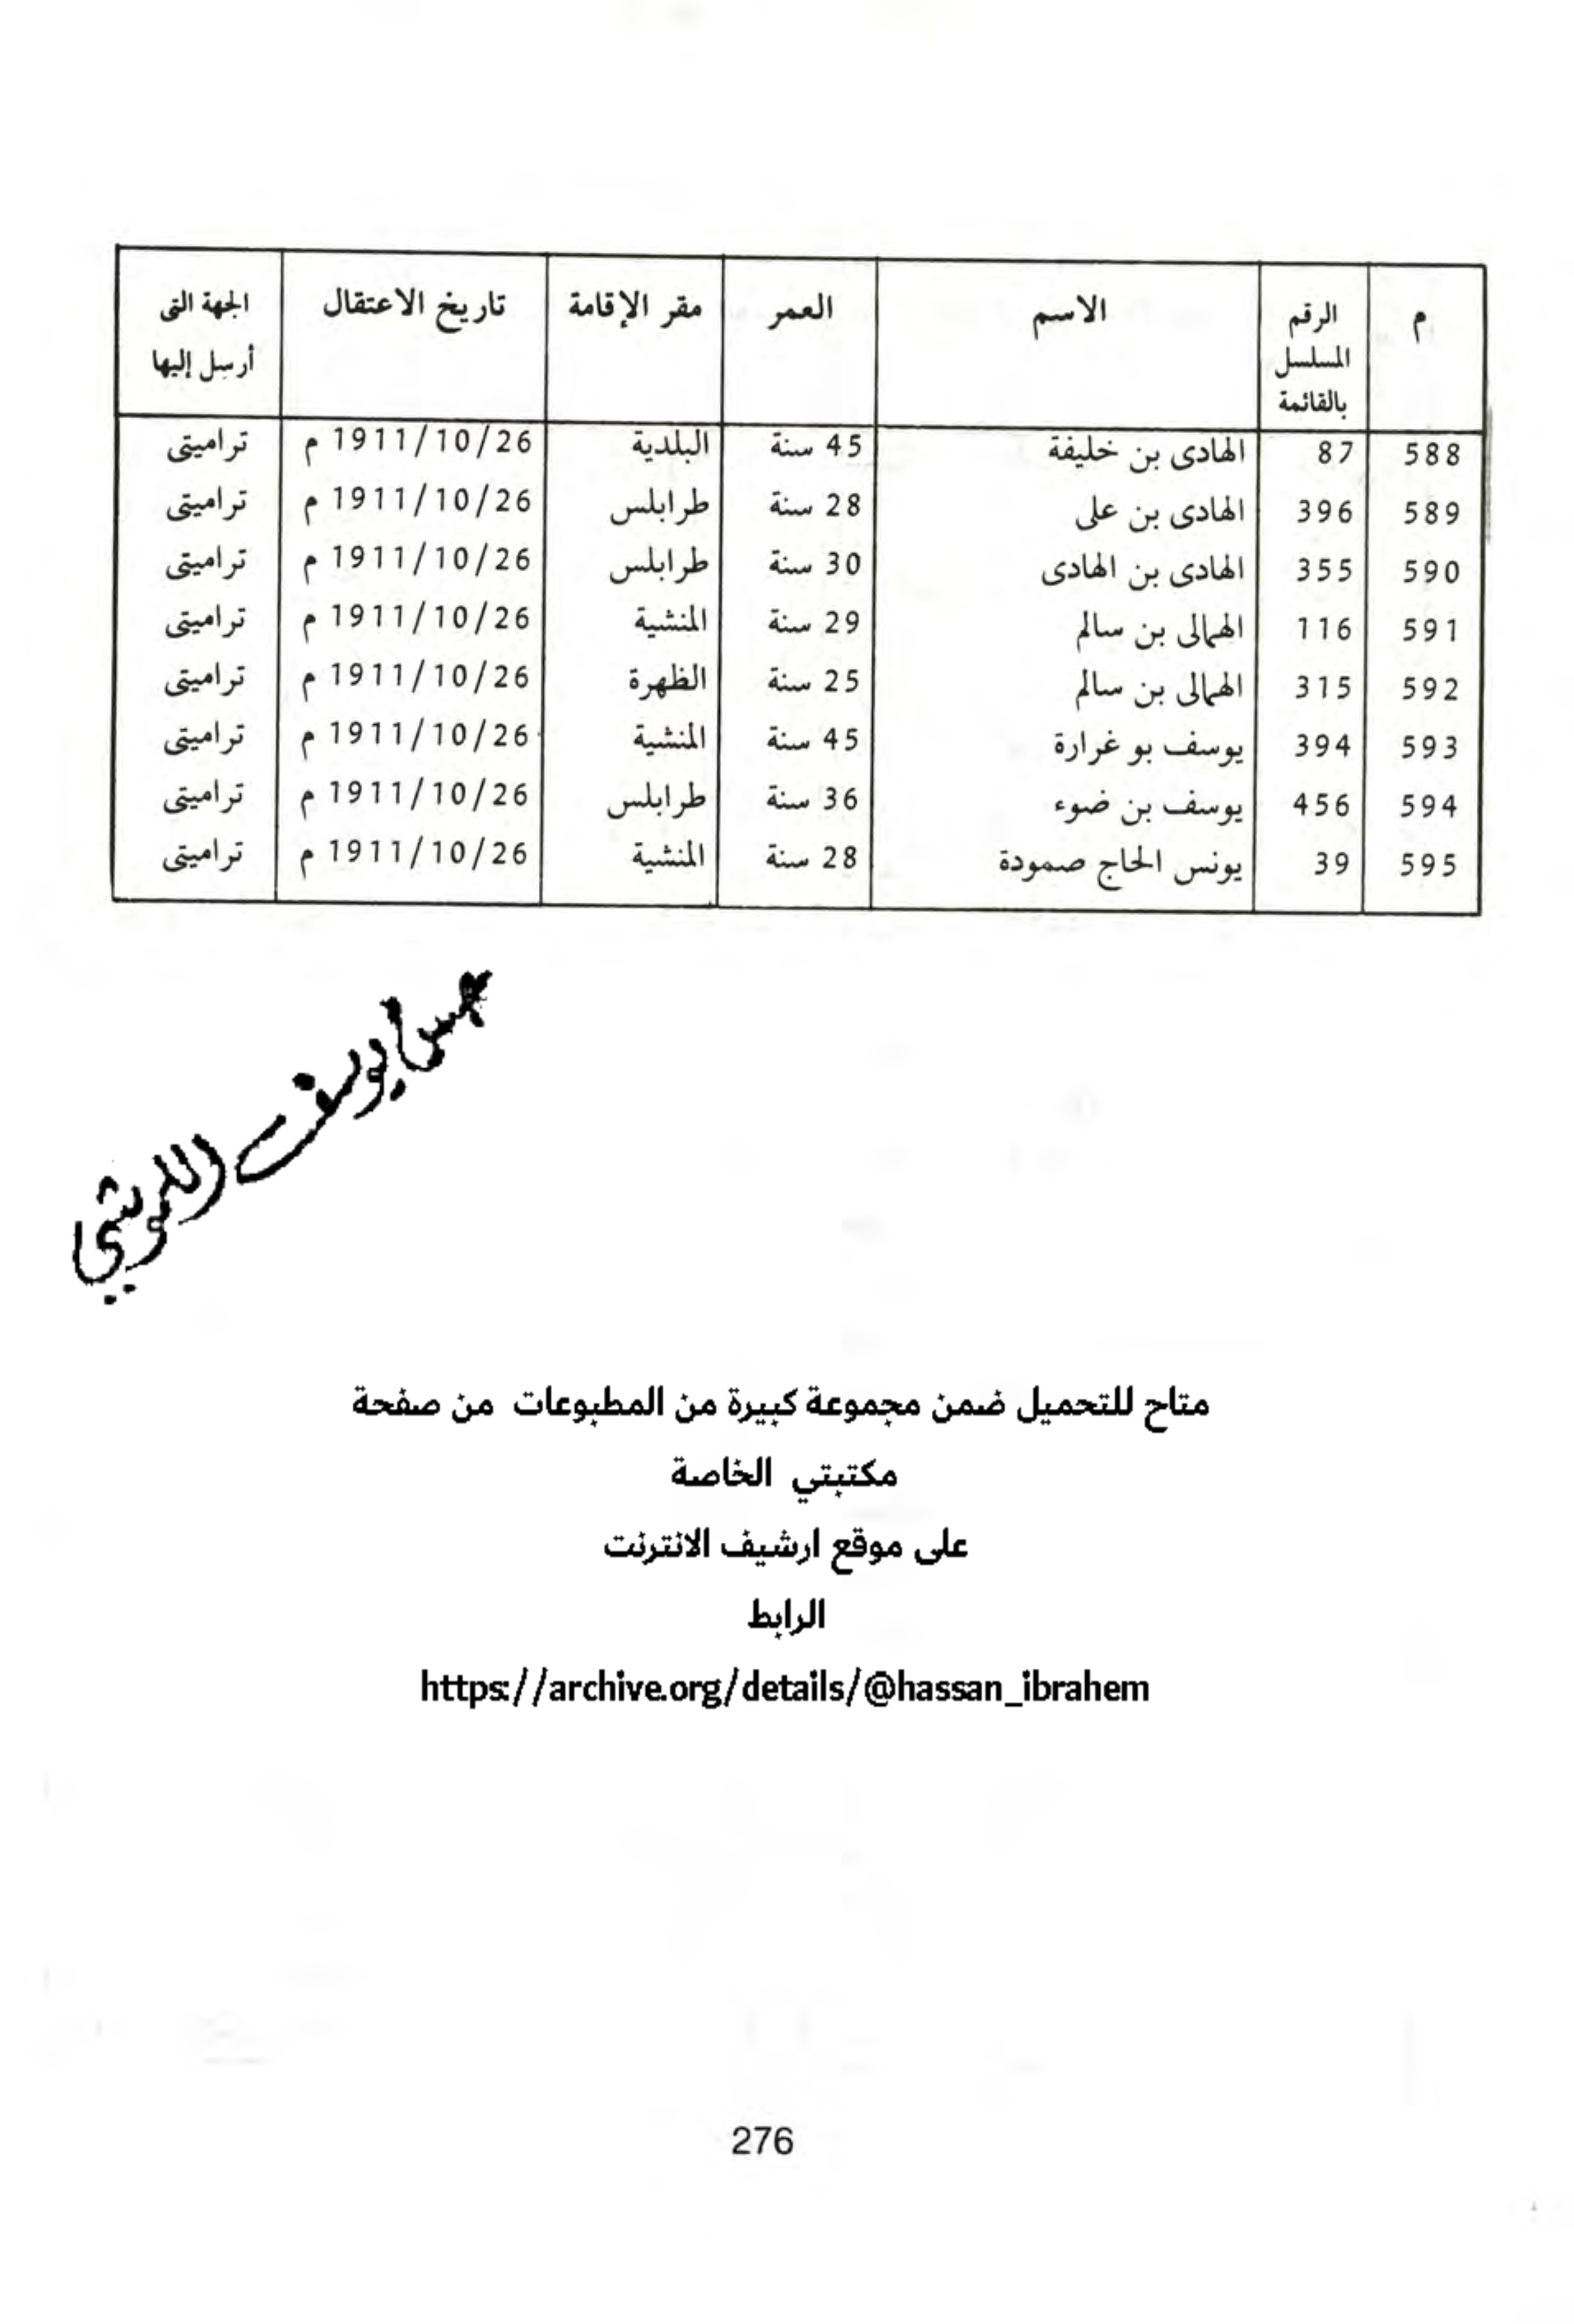 م الرقم المسلسل بالقائمة الاسم العمر مقر الإقامة تاريخ الاعتقال الجهة التى أرسل إليها
588 87 الهادى بن خليفة 45 سنة البلدية 1911/10/26 م تراميتى
589 396 الهادى بن على 28 سنة طرابلس 1911/10/26 م تراميتى
590 355 الهادى بن الهادى 30 سنة طرابلس 1911/10/26 م تراميتى
591 116 الهمالى بن سالم 29 سنة المنشية 1911/10/26 م تراميتى
592 315 الهمالى بن سالم 25 سنة الظهرة 1911/10/26 م تراميتى
593 394 يوسف بو غرارة 45 سنة المنشية 1911/10/26 م تراميتى
594 456 يوسف بن ضوء 36 سنة طرابلس 1911/10/26 م تراميتى
595 39 يونس الحاج صمودة 28 سنة المنشية 1911/10/26 م تراميتى
يوسف
متاح للتحميل ضمن مجموعة كبيرة من المطبوعات من صفحة
مكتبتي الخاصة
على موقع ارشيف الانترنت
الرابط
https://archive.org/details/@hassan_ibrahem
276